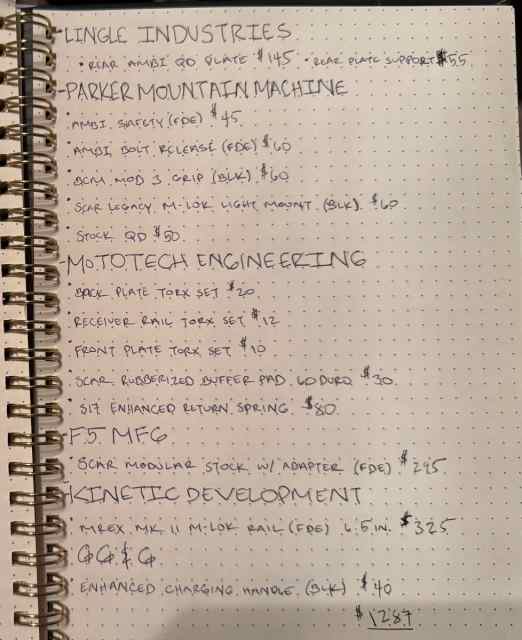 -LINGLE INDUSTRIES
• REAR AMBI QD PLATE $145 • REAR PLATE SUPPORT $55
-PARKER MOUNTAIN MACHINE
• AMBI SAFETY (FDE) $45
• AMBI BOLT RELEASE (FDE) $60
• BCM MOD 3 GRIP (BLK) $60
• SCAR LEGACY M-LOK LIGHT MOUNT (BLK) $60
• STOCK QD $50
-MOTOTECH ENGINEERING
• BACK PLATE TORX SET $20
• RECEIVER RAIL TORX SET $12
• FRONT PLATE TORX SET $10
• SCAR RUBBERIZED BUFFER PAD 60 DURO $30
• S17 ENHANCED RETURN SPRING $80
-F.5 MFG
• SCAR MODULAR STOCK W/ ADAPTER (FDE) $295
-KINETIC DEVELOPMENT
• MREX MK II M-LOK RAIL (FDE) 6.5 IN. $325
-GG&G
• ENHANCED CHARGING HANDLE (BLK) $40
$1287